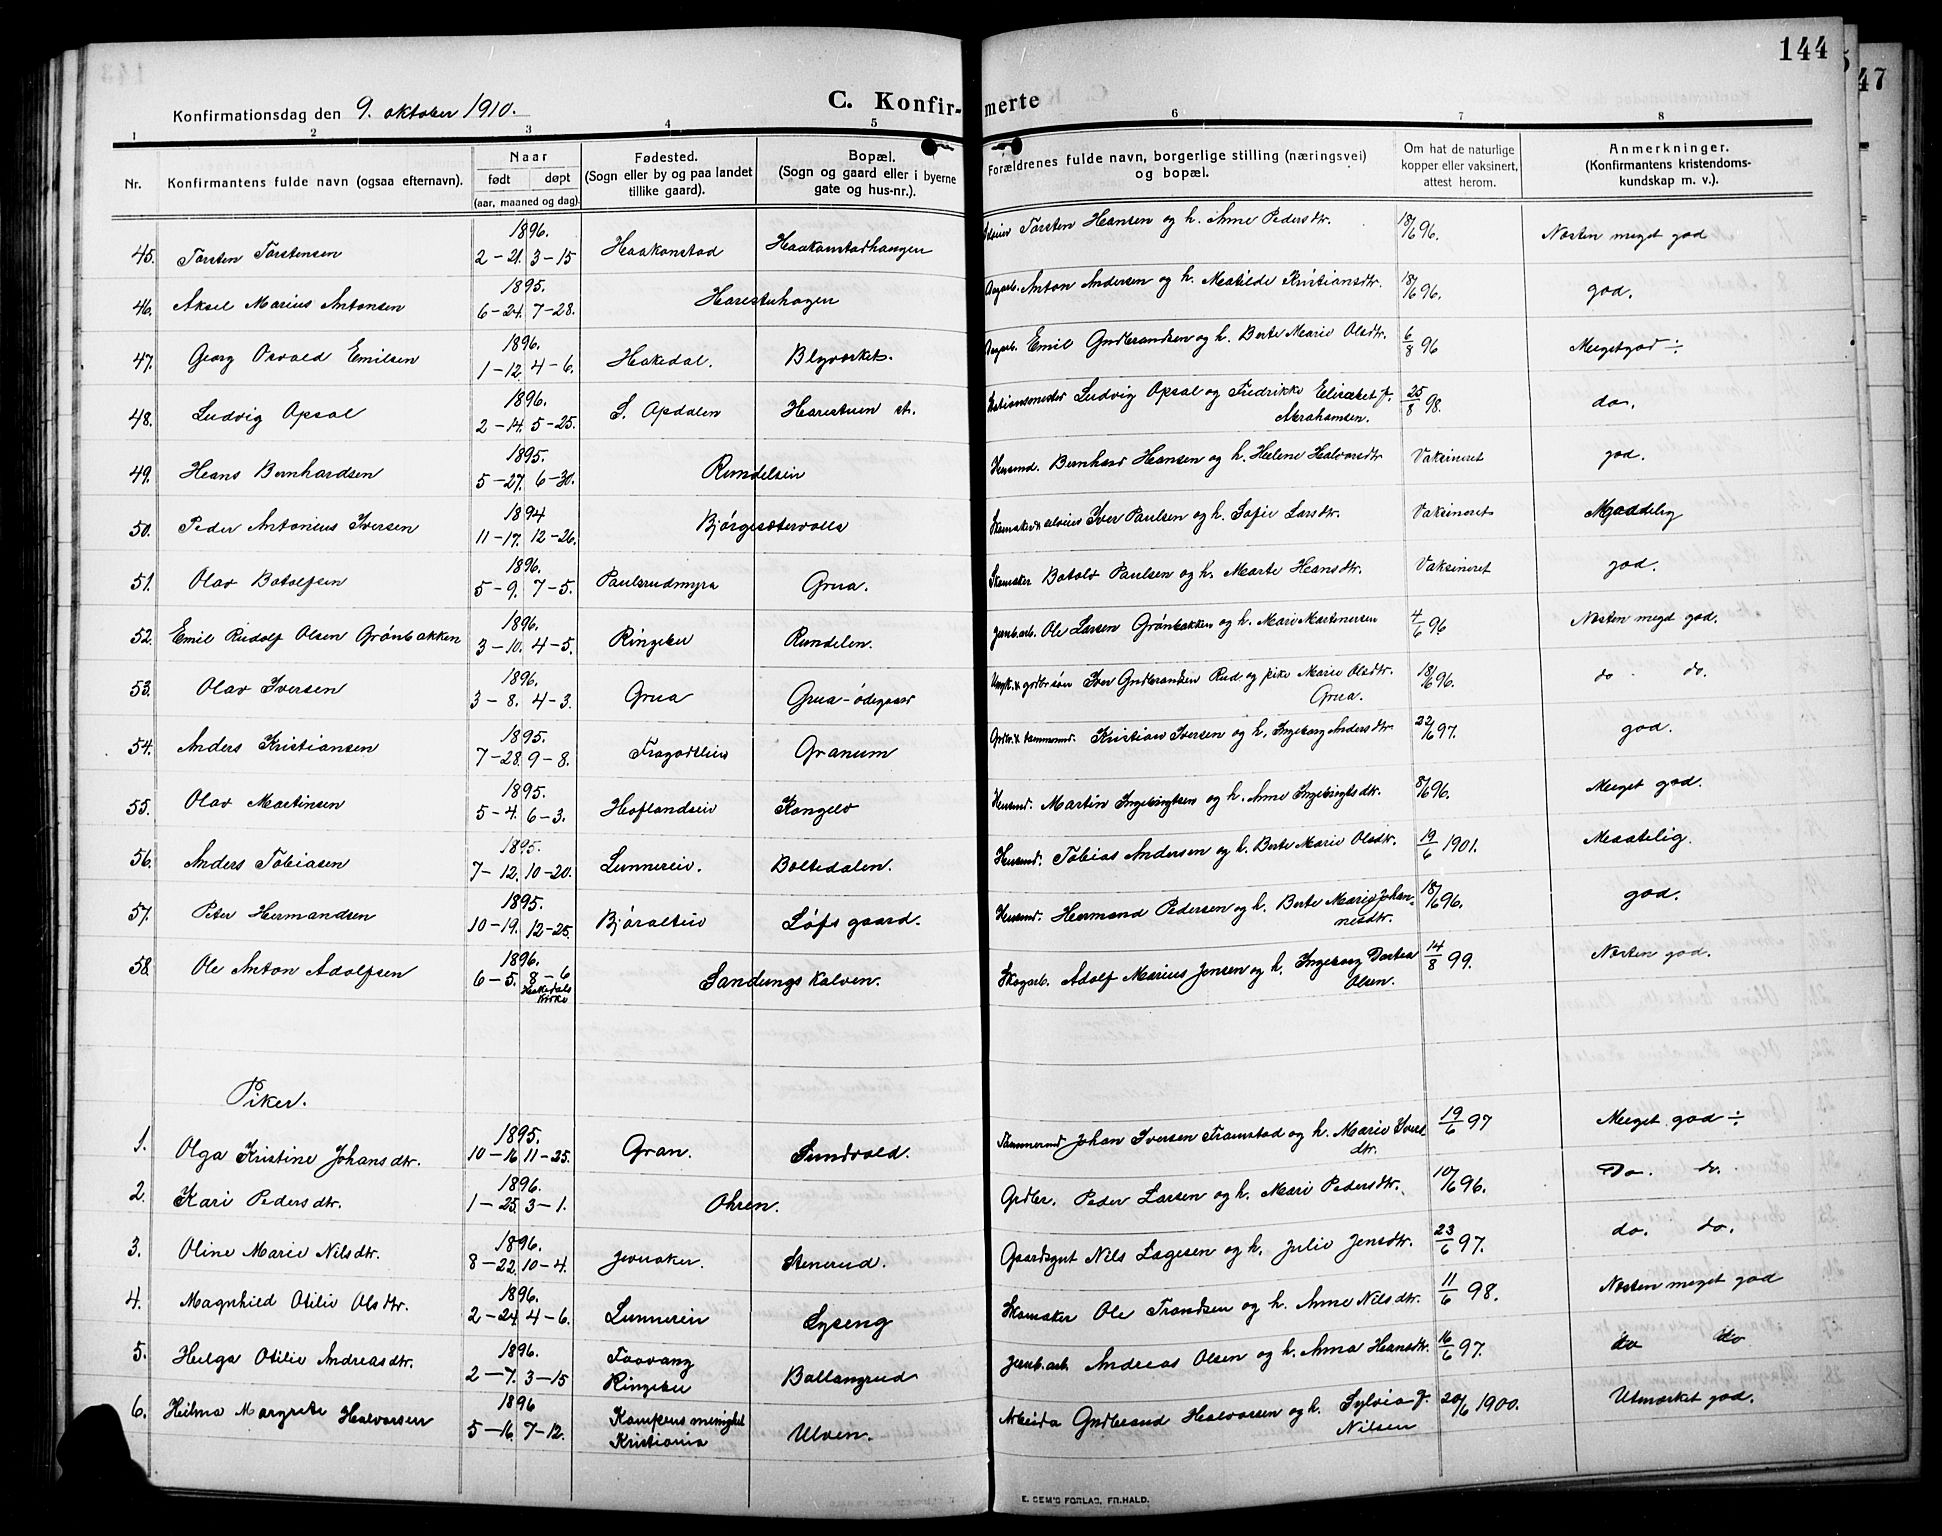 144
47
Konfirmationsdag den 9. oktober 1910.
C. Konfir-merte
1 2 3 4 5 6 7 8
Nr.
Konfirmantens fulde navn (ogsaa efternavn).
Naar
født døpt
(aar, maaned og dag).
Fødested.
(Sogn eller by og paa landet
tillike gaard).
Bopæl.
(Sogn og gaard eller i byerne
gate og hus-nr.).
Forældrenes fulde navn, borgerlige stilling (næringsvei)
og bopæl.
Om hat de naturlige
kopper eller vaksinert,
attest herom.
Anmerkninger.
(Konfirmantens kristendoms-
kundskap m. v.).
1896.
45. Torsten Torstensen 2-21. 3-15 Haakonstad Haakonstadhangen Torsten Hansen og h. Anne Pedersdtr. 18/6 96. Næsten meget god
1895.
46. Aksel Marius Antonsen 6-24. 7-28. Harestuhagen Anton Andersen og h. Matilde Kristiansdtr. 18/6 96. god.
1896.
47. Georg Osvald Emilsen 1-12. 4-6. Hakedal. Blyverket. Emil Gudbrandsen og h. Berte Marie Olsdtr. 6/8 96 Meget god ÷
1896.
48. Ludvig Opsal 2-14. 5-25. S. Opdalen Harestuen st. Stationsmester Ludvig Opsal og Fredrikke Elisabet f.
Abrahamsen. 25/8 98. do.
1895.
49. Hans Bernhardsen 5-27. 6-30. Rundelseie Husmd. Bernhard Hansen og h. Helene Halvorsdtr. Vaksineret god.
1894
50. Peder Antonius Iversen 11-17. 12-26. Bjørgesætervolla Iver Paulsen og h. Sofie Larsdtr. Vaksineret Maadelig
1896.
51. Olav Botolfsen 5-9. 7-5. Paulsrudmyra Grua. Skomaker Botolv Paulsen og h. Marte Hansdtr. Vaksineret god.
1896.
52. Emil Rudolf Olsen Grönbakken 3-10. 4-5. Ringebu Rundelen. Jernb.arb. Ole Larsen Grönbakken og h. Mari Martinussen 4/6 96 Næsten meget god.
1896.
53. Olav Iversen 3-8. 4-3. Grua Grua-ödegaard Iver Gudbrandsen Rud og pike Marie Olsdtr.
Grua. 18/6 96. do do.
1895.
54. Anders Kristiansen 7-28. 9-8. Granum Kristian Iversen og h. Ingeborg Andersdtr. 22/6 97. god.
1895.
55. Olav Martinsen 5-4. 6-3. Hoflandseie Kongelv Husmd. Martin Ingebrigtsen og h. Anne Ingebrigtsdtr. 8/6 96. Meget god.
1895.
56. Anders Tobiasen 7-12. 10-20. Lunnereie. Boltedalen. Husmd. Tobias Andersen og h. Berte Marie Olsdtr. 19/6 1901. Maatelig.
1895.
57. Peter Hermandsen 10-19. 12-25. Björalteie Löfsgaard. Husmd. Hermand Pedersen og h. Berte Marie Johan-
nesdtr. 18/6 96. god.
1896.
58. Ole Anton Adolfsen 6-5. 8-6
Hakedals
kirke Sandungskalven. Skogarb. Adolf Marius Jensen og h. Ingeborg Dortea
Olsen. 14/8 99. Næsten god.
Piker.
1895.
1. Olga Kristine Johansdtr. 10-16. 11-25. Gran. Sundvold. Johan Iversen Tramstad og h. Marie Ivers
dtr. 19/6 97 Meget god ÷
1896.
2. Kari Pedersdtr. 1-25. 3-1. Ohren. Grdbr. Peder Larsen og h. Mari Pedersdtr. 10/6 96. Do. do.
1896.
3. Oline Marie Nilsdtr. 8-22. 10-4. Jevnaker. Stenerud. Gaardsgut Nils Lagesen og h. Julie Jensdtr. 23/6 97. do. do.
1896.
4. Magnhild Otilie Olsdtr. 2-24. 4-6. Lunnereie Lyseng Skomaker Ole Trondsen og h. Anne Nilsdtr. 11/6 98. Næsten meget god
1896.
5. Helga Otilie Andreasdtr. 2-7. 3-15 Faavang
Ringebu Ballangrud Jernb.arb. Andreas Olsen og h. Anna Hansdtr. 16/6 97. do do
1896
6. Hilma Margrete Halvorsen 5-16. 7-12. Kampens menighet
Kristiania Ulven. Gudbrand Halvorsen og h. Sylvia f.
Nilsen 20/6 1900. Utmærket god.
E. SEM'S FORLAG, FR.HALD.